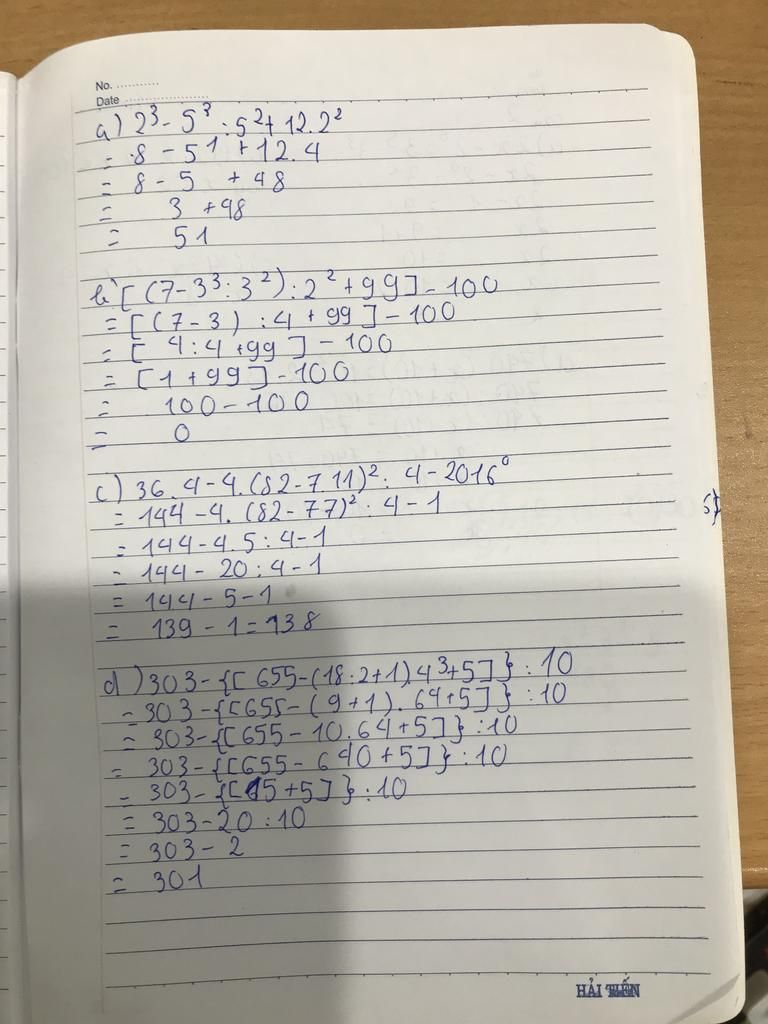 No. ...........
Date .......................
a) 2³ - 5³ : 5² + 12.2²
= 8 - 5¹ + 12.4
= 8 - 5 + 48
= 3 + 48
= 51
b) [(7 - 3³ : 3²) : 2² + 99] - 100
= [(7 - 3) : 4 + 99] - 100
= [4 : 4 + 99] - 100
= [1 + 99] - 100
= 100 - 100
= 0
c) 36.4 - 4.(82 - 7.11)² : 4 - 2016⁰
= 144 - 4.(82 - 77)² : 4 - 1
= 144 - 4.5 : 4 - 1
= 144 - 20 : 4 - 1
= 144 - 5 - 1
= 139 - 1 = 138
d) 303 - {[655 - (18 : 2 + 1).4³ + 5]} : 10
= 303 - {[655 - (9 + 1).64 + 5]} : 10
= 303 - {[655 - 10.64 + 5]} : 10
= 303 - {[655 - 640 + 5]} : 10
= 303 - {[15 + 5]} : 10
= 303 - 20 : 10
= 303 - 2
= 301
HẢI TIẾN